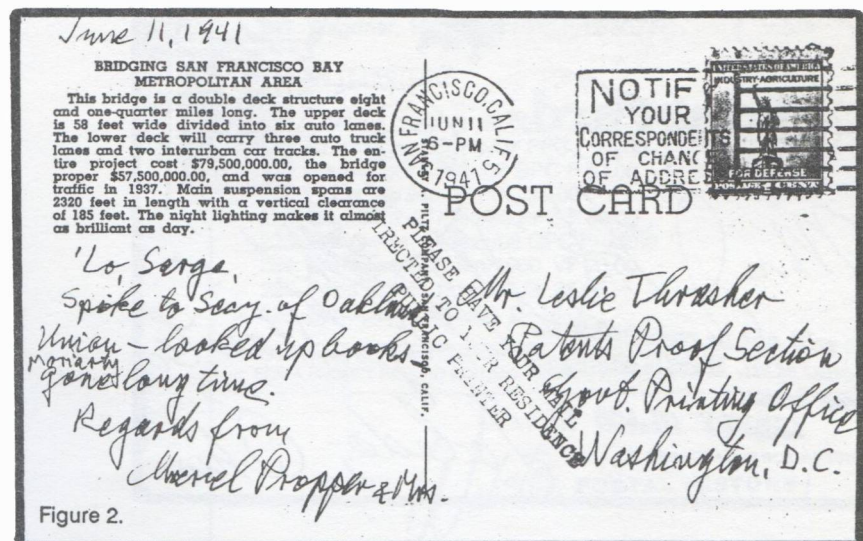 June 11, 1941
BRIDGING SAN FRANCISCO BAY
METROPOLITAN AREA
This bridge is a double deck structure eight
and one-quarter miles long. The upper deck
is 58 feet wide divided into six auto lanes.
The lower deck will carry three auto truck
lanes and two interurban car tracks. The en-
tire project cost $79,500,000.00, the bridge
proper $57,500,000.00, and was opened for
traffic in 1937. Main suspension spans are
2320 feet in length with a vertical clearance
of 185 feet. The night lighting makes it almost
as brilliant as day.
SAN FRANCISCO, CALIF. 5
JUN 11
6-PM
1941
NOTIF
YOUR
CORRESPONDENTS
OF CHANG
OF ADDRE
UNITED STATES OF AMERICA
INDUSTRY-AGRICULTURE
FOR DEFENSE
POST CARD
PILTZ COMPANY, SAN FRANCISCO, CALIF.
PLEASE HAVE YOUR MAIL
DIRECTED TO YOUR RESIDENCE
PUBLIC PRINTER
'Lo, Sarge,
Spoke to Secy. of Oakland
Union – looked up books,
Moriarty
gone long time.
Regards from
Propper & Mrs.
Mr. Leslie Thrasher
Patents Proof Section
Govt. Printing Office
Washington, D.C.
Figure 2.